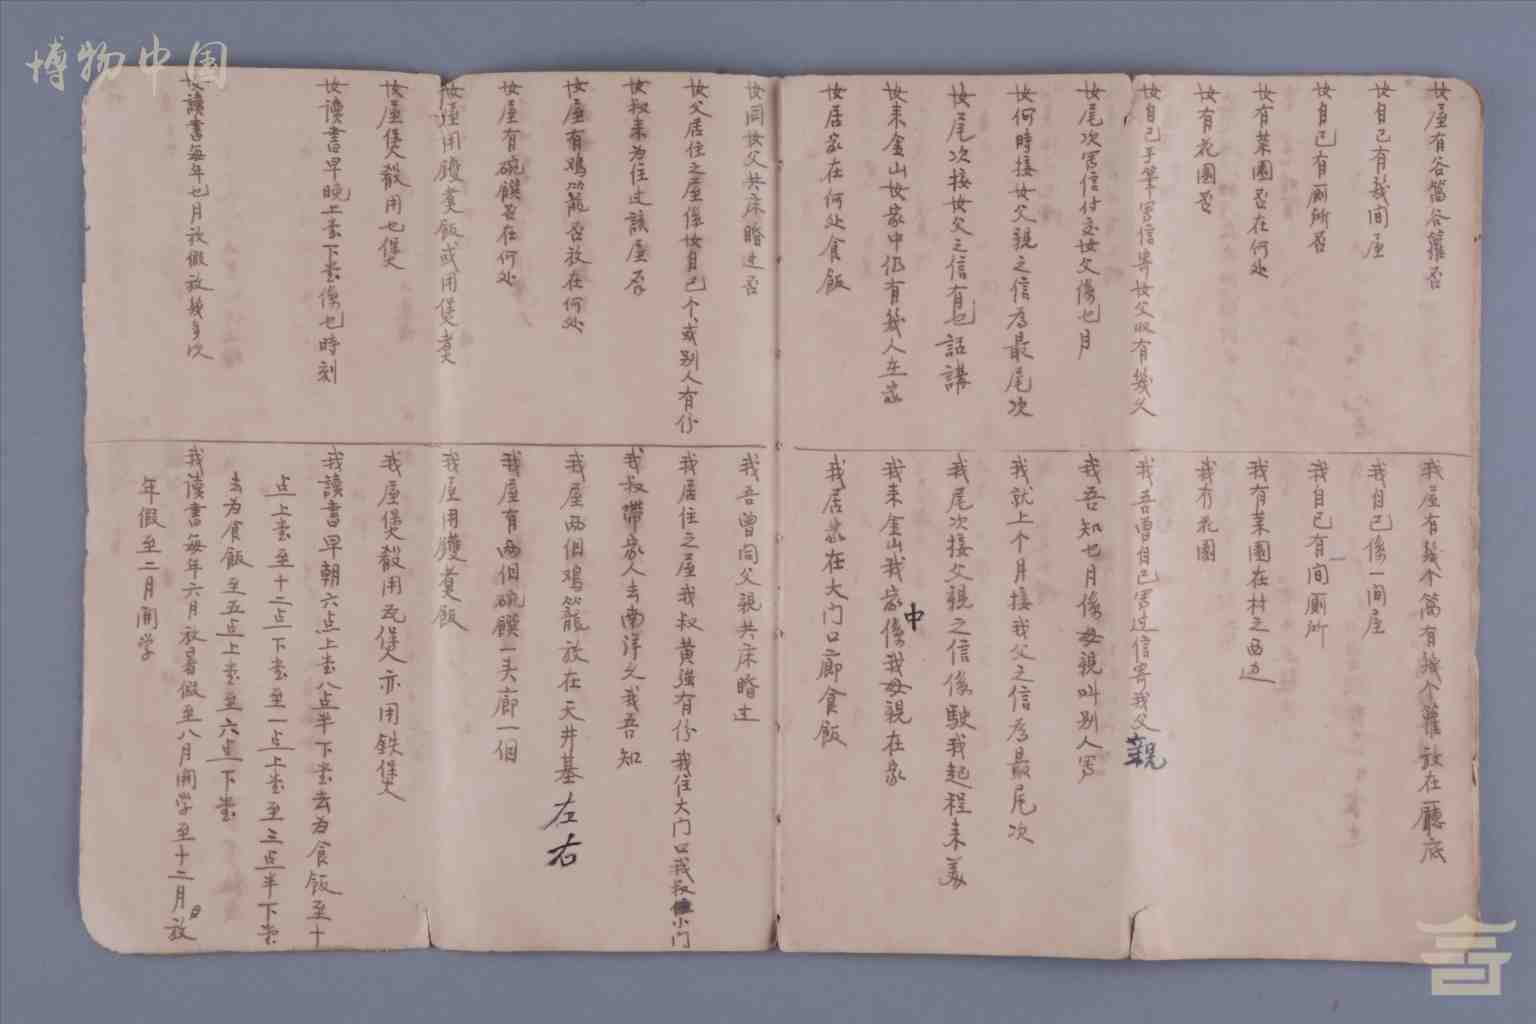 博物中国
汝屋有谷笛谷籮否
汝自己有幾间屋
汝自己有廁所否
汝有菜園否在何处
汝有花園否
汝自己手筆寫信寄汝父収有幾久
汝尾次寫信付交汝父係乜月
汝何時接汝父親之信為最尾次
汝尾次接汝父之信有乜話講
汝来金山汝家中仍有幾人在家
汝居家在何处食飯
我屋有幾个笛有幾个籮放在廳底
我自己係一间屋
我自己有一间廁所
我有菜園在村之西边
我冇花園
我吾曾自己寫过信寄我父親
我吾知乜月係母親叫别人寫
我就上个月接我父之信為最尾次
我尾次接父親之信係駛我起程来美
我来金山我家中係我母親在家
我居家在大门口廊食飯
汝同汝父共床瞓过否
汝父居住之屋係汝自己个或别人有份
汝叔来为住过該屋否
汝屋有鸡籠否放在何处
汝屋有碗饌否在何处
汝屋用鑊煑飯或用煲煑
汝屋煲餸用乜煲
汝讀書早晚上堂下堂係乜時刻
汝讀書每年乜月放假放幾多次
我吾曾同父親共床瞓过
我居住之屋我叔黄強有份我住大门口我叔住小门
我叔带家人去南洋久我吾知
我屋两個鸡籠放在天井基左右
我屋有两個碗饌一头廊一個
我屋用鑊煑飯
我屋煲餸用瓦煲亦用鉄煲
我讀書早朝六点上堂八点半下堂去为食飯至十
点上堂至十二点下堂至一点上堂至三点半下堂
去为食飯至五点上堂至六点下堂
我读書每年六月放暑假至八月開学至十二月放
年假至二月開学